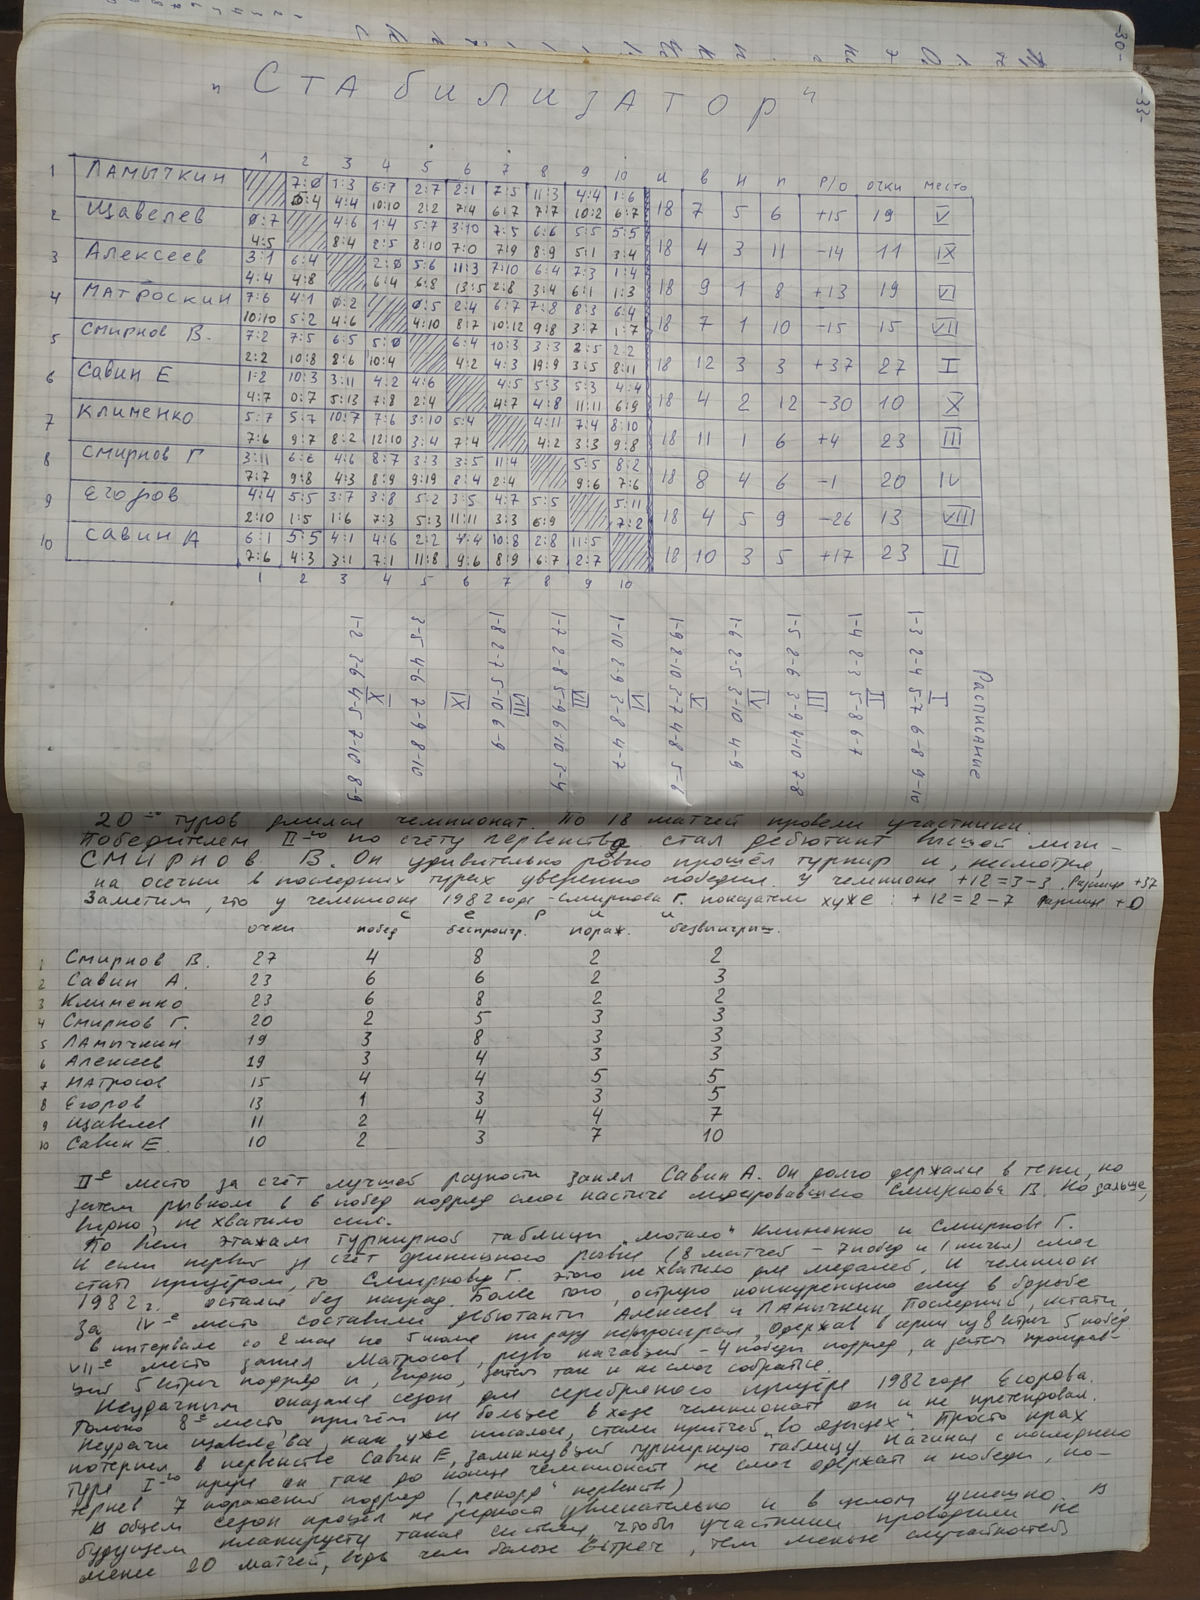 -30-
-33-
"Стабилизатор"
1 2 3 4 5 6 7 8 9 10 И В Н П Р/О очки место
1 Ламычкин 7:0 1:3 6:7 2:7 2:1 7:5 11:3 4:4 1:6 18 7 5 6 +15 19 V
5:4 4:4 10:10 2:2 7:4 6:7 7:7 10:2 6:7
2 Щавелев 0:7 4:6 1:4 5:7 3:10 7:5 6:6 5:5 5:5 18 4 3 11 -14 11 IX
4:5 8:4 2:5 8:10 7:0 7:9 8:9 5:1 3:4
3 Алексеев 3:1 6:4 2:0 5:6 11:3 7:10 6:4 7:3 1:4 18 9 1 8 +13 19 VI
4:4 4:8 6:4 6:8 13:5 2:8 3:4 6:1 1:3
4 Матроскин 7:6 4:1 0:2 0:5 2:4 6:7 7:8 8:3 6:4 18 7 1 10 -15 15 VII
10:10 5:2 4:6 4:10 8:7 10:12 9:8 3:7 1:7
5 Смирнов В. 7:2 7:5 6:5 5:0 6:4 10:3 3:3 2:5 2:2 18 12 3 3 +37 27 I
2:2 10:8 8:6 10:4 4:2 4:3 19:9 3:5 8:11
6 Савин Е 1:2 10:3 3:11 4:2 4:6 4:5 5:3 5:3 4:4 18 4 2 12 -30 10 X
4:7 0:7 5:13 7:8 2:4 4:7 4:8 11:11 6:9
7 Клименко 5:7 5:7 10:7 7:6 3:10 5:4 4:11 7:4 8:10 18 11 1 6 +4 23 III
7:6 9:7 8:2 12:10 3:4 7:4 4:2 3:3 9:8
8 Смирнов Г 3:11 6:6 4:6 8:7 3:3 3:5 11:4 5:5 8:2 18 8 4 6 -1 20 IV
7:7 9:8 4:3 8:9 9:19 8:4 2:4 9:6 7:6
9 Егоров 4:4 5:5 3:7 3:8 5:2 3:5 4:7 5:5 5:11 18 4 5 9 -26 13 VIII
2:10 1:5 1:6 7:3 5:3 11:11 3:3 6:9 7:2
10 Савин А 6:1 5:5 4:1 4:6 2:2 4:4 10:8 2:8 11:5 18 10 3 5 +17 23 II
7:6 4:3 3:1 7:1 11:8 9:6 8:9 6:7 2:7
1 2 3 4 5 6 7 8 9 10
Расписание
I
1-3 2-4 5-7 6-8 9-10
II
1-4 2-3 5-8 6-7
III
1-5 2-6 3-9 4-10 7-8
IV
1-6 2-5 3-10 4-9
V
1-9 2-10 3-7 4-8 5-6
VI
1-10 2-9 3-8 4-7
VII
1-7 2-8 5-9 6-10 3-4
VIII
1-8 2-7 5-10 6-9
IX
3-5 4-6 7-9 8-10
X
1-2 3-6 4-5 7-10 8-9
20 туров длился чемпионат. По 18 матчей провели участники.
Победителем II-го по счёту первенства стал дебютант высшей лиги -
СМИРНОВ В. Он удивительно ровно прошёл турнир и, несмотря,
на осечки в последних турах уверенно победил. У чемпиона +12=3-3. Разница +37
Заметим, что у чемпиона 1982 года - Смирнова Г. показатели хуже: +12=2-7 разница +0
с е р и и
очки побед беспроигр. пораж. безвыигрыш.
1 Смирнов В. 27 4 8 2 2
2 Савин А. 23 6 6 2 3
3 Клименко 23 6 8 2 2
4 Смирнов Г. 20 2 5 3 3
5 Ламычкин 19 3 8 3 3
6 Алексеев 19 3 4 3 3
7 Матросов 15 4 4 5 5
8 Егоров 13 1 3 3 5
9 Щавелев 11 2 4 4 7
10 Савин Е. 10 2 3 7 10
II-е место за счёт лучшей разности занял Савин А. Он долго держался в тени, но
затем рывком в 6 побед подряд смог настичь лидировавшего Смирнова В. Но дальше,
видно, не хватило сил.
По всем этажам турнирной таблицы "мотало" Клименко и Смирнова Г.
И если первый за счёт финишного рывка (8 матчей - 7 побед и 1 ничья) смог
стать призёром, то Смирнову Г. этого не хватило для медалей, и чемпион
1982 г. остался без наград. Более того, острую конкуренцию ему в борьбе
за IV-е место составили дебютанты Алексеев и Ламычкин. Последний, кстати,
в интервале со 2 мая по 5 июля ни разу не проиграл, одержав в серии из 8 встреч 5 побед
VII-е место занял Матросов, резво начавший - 4 победы подряд, а затем проиграв-
ший 5 встреч подряд и, видно, затем так и не смог собраться.
Неудачным оказался сезон для серебряного призёра 1982 года Егорова.
Только 8-е место, причём на большее в ходе чемпионата он и не претендовал.
Неудачи Щавелева, как уже писалось, стали притчей "во языцех". Просто крах
потерпел в первенстве Савин Е, замкнувший турнирную таблицу. Начиная с последнего
тура I-го круга он так до конца чемпионата не смог одержать и победы, по-
терпев 7 поражений подряд ("рекорд" первенств)
В общем сезон прошёл увлекательно и в целом успешно. В
будущем планируется такая система, чтобы участники проводили не
менее 20 матчей, ведь чем больше встреч, тем меньше случайностей